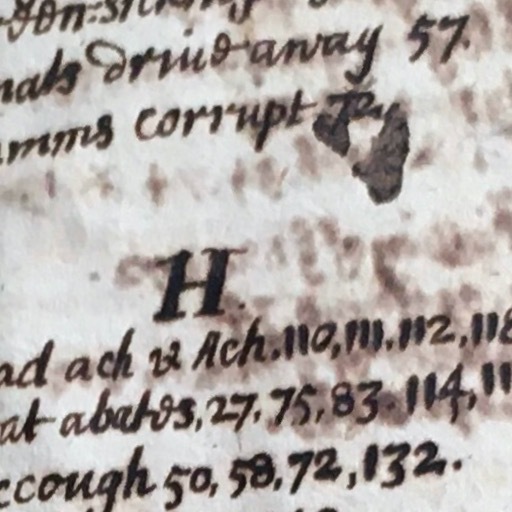 nats driud away 57.
umms corrupt
H.
ad ach vz Ach. 110, 111. 112, 118
at abates, 27, 75, 83. 114, 11
ccough 50, 58, 72, 132.